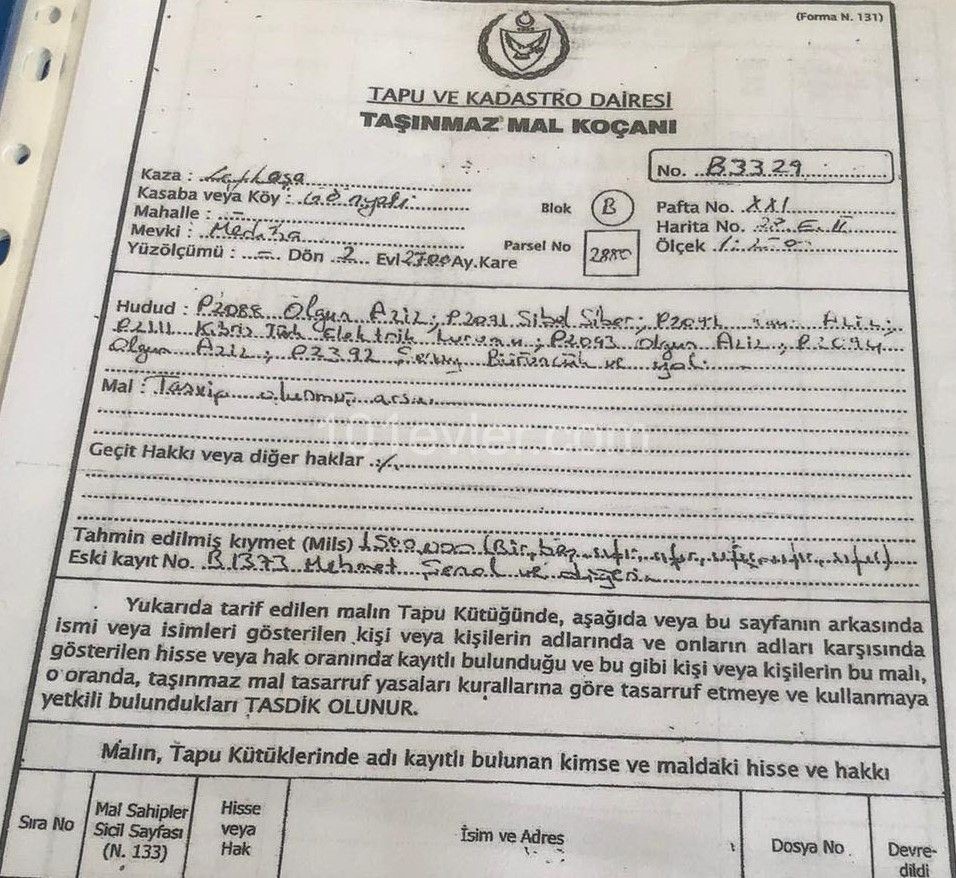 (Forma N. 131)
TAPU VE KADASTRO DAİRESİ
TAŞINMAZ MAL KOÇANI
No. B3329
Kaza : Lefkoşa
Kasaba veya Köy : Gönyeli
Mahalle : -
Mevki : Mediha
Yüzölçümü : - Dön 2 Evl 2700 Ay.Kare
Blok B
Parsel No 2880
Pafta No. XXI
Harita No. 22.E.II
Ölçek
Hudud : P2088 Olgun Aziz; P2091 Sibel Siber; P2092 Aziz;
P2111 Kıbrıs Türk Elektrik Kurumu; P2093 Olgun Aziz; P2094
Olgun Aziz; P2392 ve yol.
Mal : Tasvip olunmuş arsa
101evler.com
Geçit Hakkı veya diğer haklar :
Tahmin edilmiş kıymet (Mils) 1500.000 (Bir, beş, sıfır, sıfır, sıfır, sıfır, sıfır)
Eski kayıt No. B1373 Mehmet Şenol ve diğeri
Yukarıda tarif edilen malın Tapu Kütüğünde, aşağıda veya bu sayfanın arkasında
ismi veya isimleri gösterilen kişi veya kişilerin adlarında ve onların adları karşısında
gösterilen hisse veya hak oranında kayıtlı bulunduğu ve bu gibi kişi veya kişilerin bu malı,
o oranda, taşınmaz mal tasarruf yasaları kurallarına göre tasarruf etmeye ve kullanmaya
yetkili bulundukları TASDİK OLUNUR.
Malın, Tapu Kütüklerinde adı kayıtlı bulunan kimse ve maldaki hisse ve hakkı
Sıra No
Mal Sahipler
Sicil Sayfası
(N. 133)
Hisse
veya
Hak
İsim ve Adres
Dosya No
Devre-
dildi